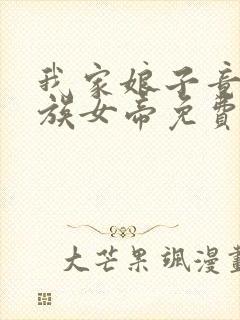 我家娘子竟
族女帝免費
大芒果颯漫畫